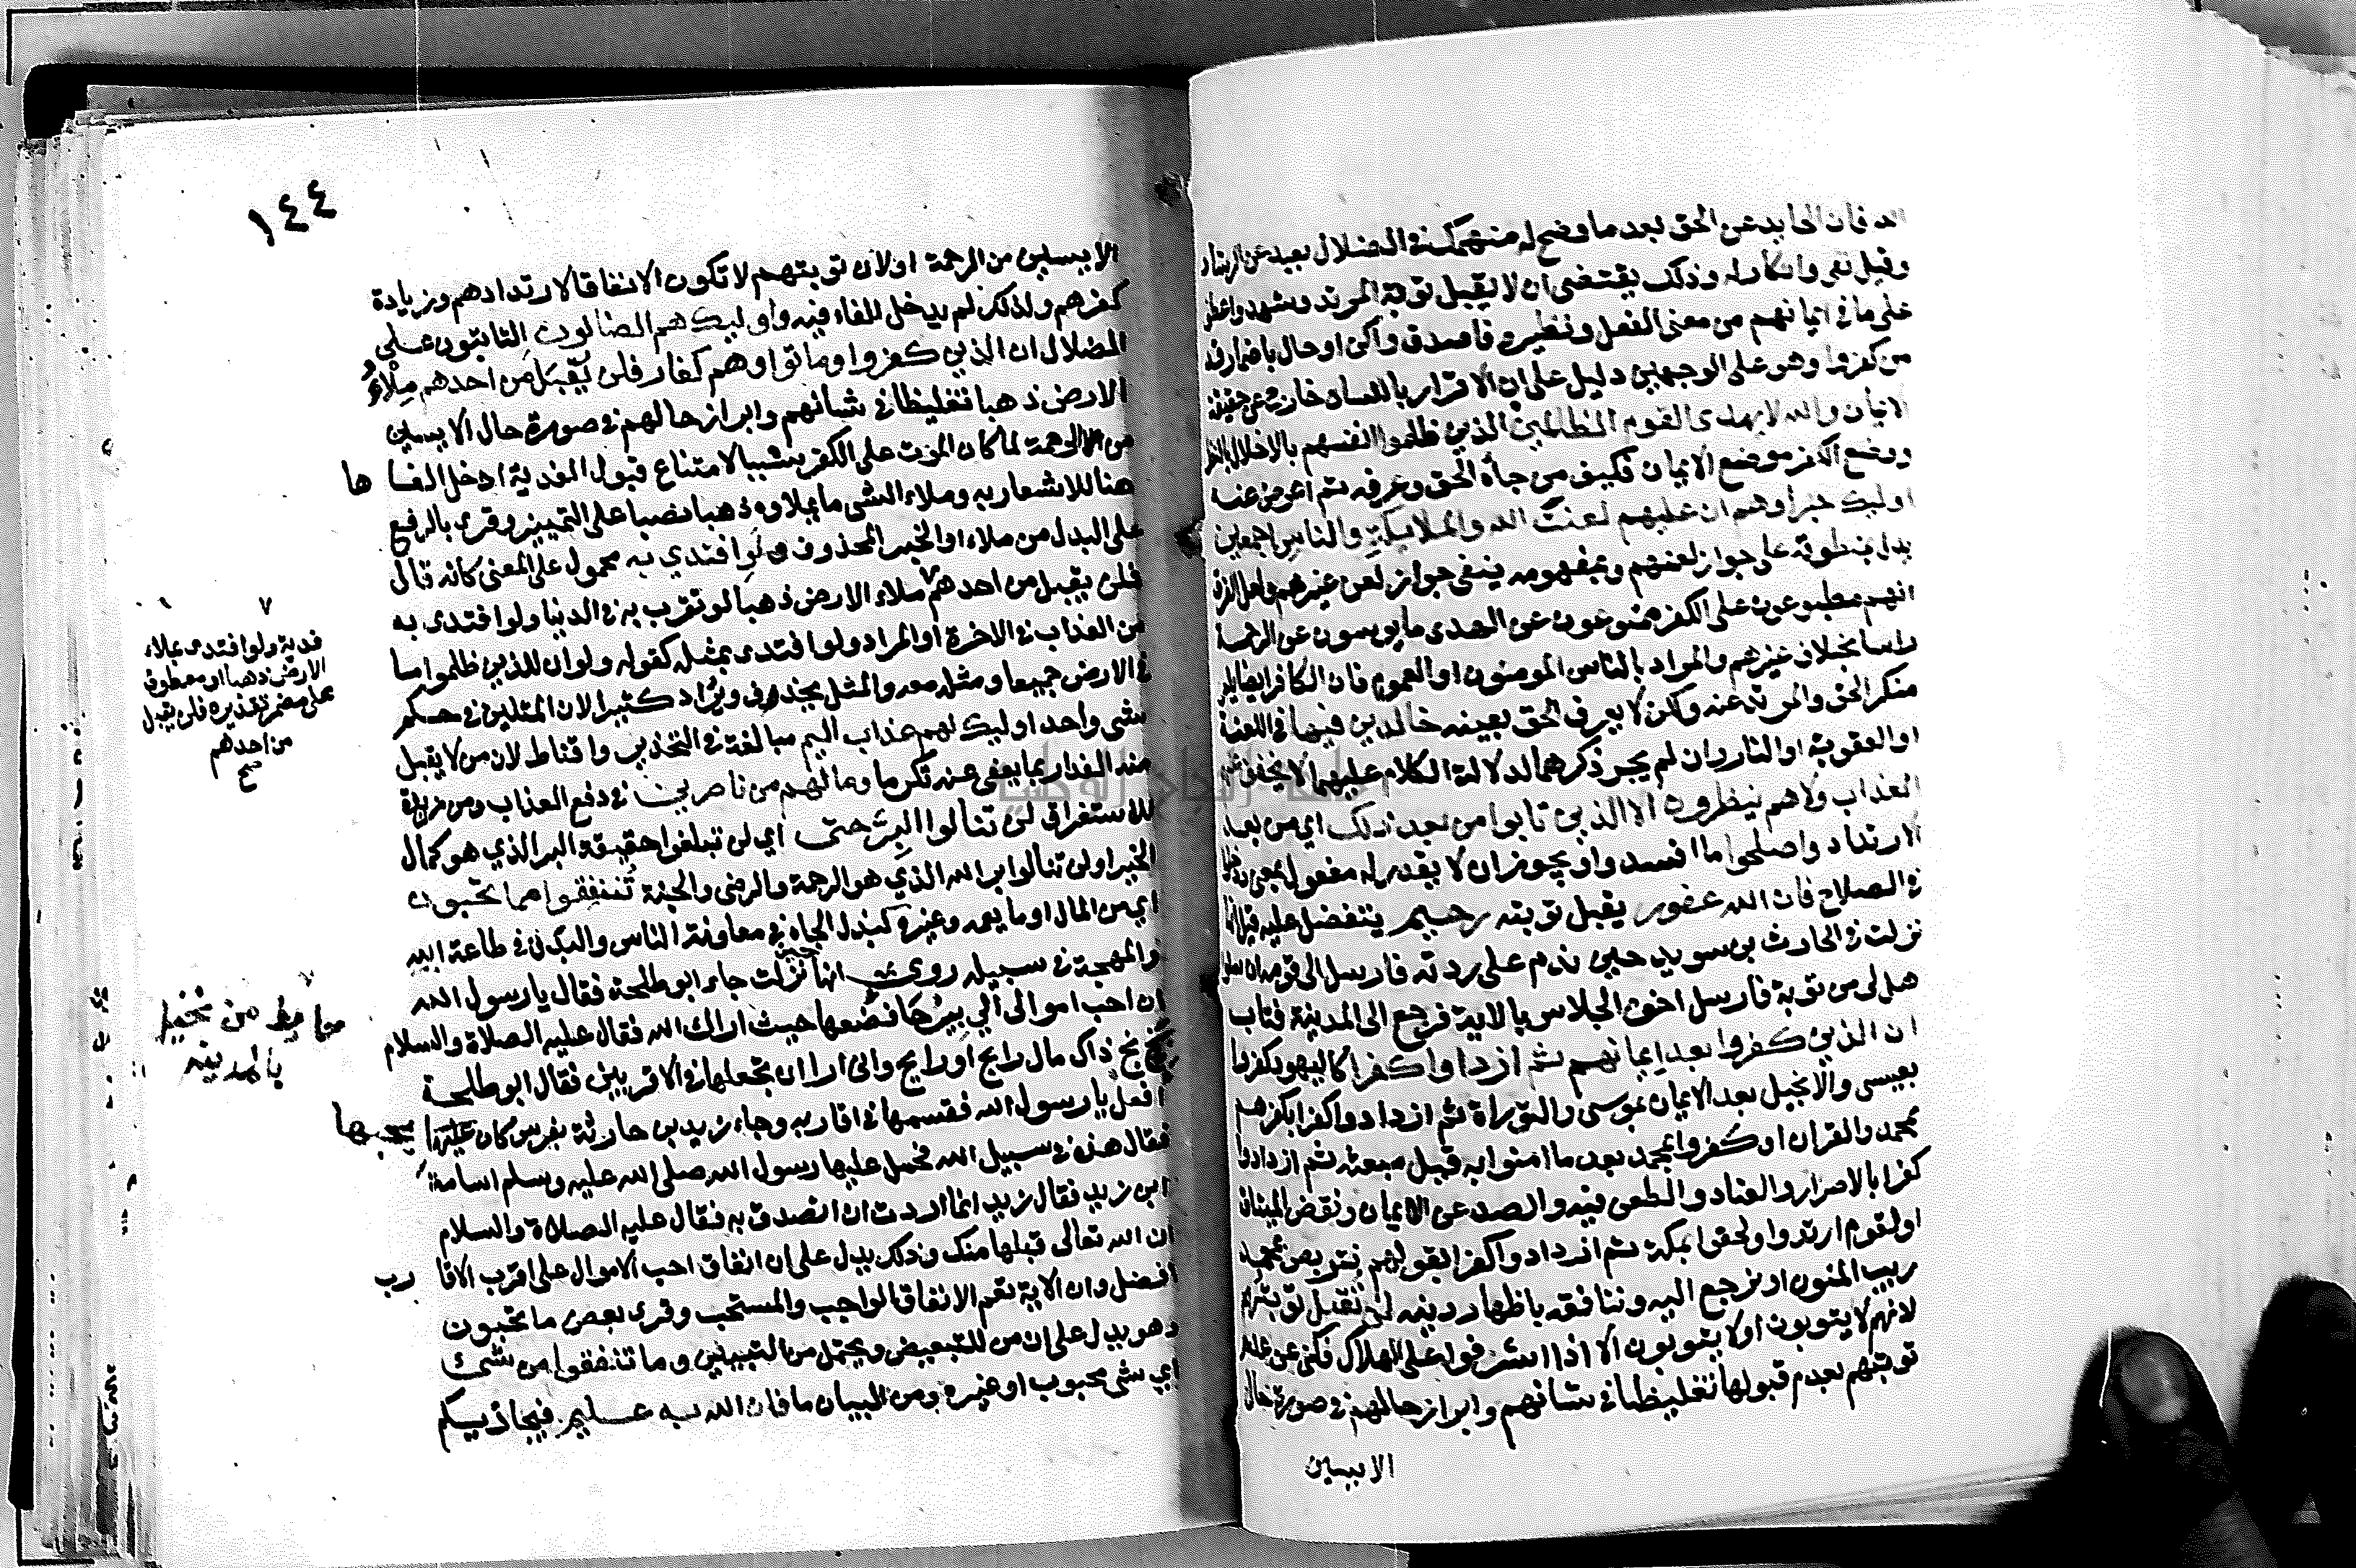 الله فان الحايد عن الحق بعد ما وضح له منهمك في الضلال بعيد عن الرشاد
وقيل نفي وانكار له وذلك يقتضي ان لا يقبل توبة المرتد وشهدوا عطف
على ما في ايمانهم من معنى الفعل ونظيره فاصدق واكن او حال باضمار قد
من كفروا وهو على الوجهين دليل على ان الاقرار باللسان خارج عن حقيقة
الايمان والله لا يهدى القوم الظالمين الذين ظلموا انفسهم بالاخلال بالنظر
ووضع الكفر موضع الايمان فكيف من جاه الحق وعرفه ثم اعرض عنه
اوليك جزاوهم ان عليهم لعنت الله والملايكة والناس اجمعين
يدل بمنطوقه على جواز لعنهم وبمفهومه ينفي جواز لعن غيرهم ولعل الفرق
انهم مطبوعون على الكفر ممنوعون عن الهدى مايوسون عن الرحمة
راسا بخلاف غيرهم والمراد بالناس المومنون او العموم فان الكافر ايضا يلعن
منكر الحق والمرتد عنه ولكن لا يعرف الحق بعينه خالدين فيها في اللعنة
او العقوبة او النار وان لم يجر ذكرهما لدلالة الكلام عليهما لا يخفف عنهم
العذاب ولا هم ينظرون الا الذين تابوا من بعد ذلك اي من بعد
الارتداد واصلحوا ما افسدوا ويجوز ان لا يقدر له مفعول بمعنى ودخلوا
في الصلاح فان الله غفور يقبل توبته رحيم يتفضل عليه قيل انها
نزلت في الحارث بن سويد حين ندم على ردته فارسل الى قومه ان سلوا
هل لي من توبة فارسل اخوه الجلاس بالاية فرجع الى المدينة فتاب
ان الذين كفروا بعد ايمانهم ثم ازدادوا كفرا كاليهود كفروا
بعيسى والانجيل بعد الايمان بموسى والتوراة ثم ازدادوا كفرا بكفرهم
بمحمد والقران او كفروا بمحمد بعد ما امنوا به قبل مبعثه ثم ازدادوا
كفرا بالاصرار والعناد والطعن فيه والصد عن الايمان ونقض الميثاق
او لقوم ارتدوا ولحقوا بمكة ثم ازدادوا كفرا بقولهم نتربص بمحمد
ريب المنون او نرجع اليه وننافقه باظهار دينه لن تقبل توبتهم
لانهم لا يتوبون او لا يتوبون الا اذا اشرفوا على الهلاك فكنى عن عدم
توبتهم بعدم قبولها تغليظا في شانهم وابراز حالهم في صورة حال
الايسين
١٤٤
الايسين من الرحمة او لان توبتهم لا تكون الا نفاقا لا رتدادهم وزيادة
كفرهم ولذلك لم يدخل الفاء فيه واوليك هم الضالون الثابتون على
الضلال ان الذين كفروا وماتوا وهم كفار فلن يقبل من احدهم ملاء
الارض ذهبا تغليظا في شانهم وابراز حالهم في صورة حال الايسين
من الرحمة لما كان الموت على الكفر سببا لامتناع قبول الفدية ادخل الفا ها
هنا للاشعار به وملاء الشى ما يملاوه وذهبا نصبا على التمييز وقرى بالرفع
على البدل من ملاء او الخبر لمحذوف ولو افتدي به محمول على المعنى كانه قال
فلن يقبل من احدهم ملاء الارض ذهبا لو تقرب به في الدنيا ولو افتدى به
من العذاب في الاخرة او المراد ولو افتدى بمثله كقوله ولو ان للذين ظلموا ما
في الارض جميعا ومثله معه والمثل يحذف ويزاد كثيرا لان المثلين في حكم
شى واحد اوليك لهم عذاب اليم مبالغة في التحذير واقناط لان من لا يقبل
منه الفدا ربما يعفى عنه تكرما وما لهم من ناصرين في دفع العذاب ومن مزيدة
للاستغراق لن تنالوا البر حتى اي لن تبلغوا حقيقة البر الذي هو كمال
الخير او لن تنالوا بر الله الذي هو الرحمة والرضى والجنة تنفقوا مما تحبون
اي من المال او ما يعمه وغيره كبذل الجاه في معاونة الناس والبدن في طاعة الله
والمهجة في سبيله روي انها نزلت جاء ابو طلحة فقال يا رسول الله
ان احب اموالى الي بيرحا فضعها حيث اراك الله فقال عليه الصلاة والسلام
بخ بخ ذاك مال رابح او رايح وانى ارا ان تجعلها في الاقربين فقال ابو طلحة
افعل يا رسول الله فقسمها في اقاربه وجاء زيد بن حارثة بفرس كان يحبها
فقال هذه في سبيل الله فحمل عليها رسول الله صلى الله عليه وسلم اسامة
ابن زيد فقال زيد انما اردت ان اتصدق به فقال عليه الصلاة والسلام
ان الله تعالى قبلها منك وذلك يدل على ان انفاق احب الاموال على اقرب الاقا رب
افضل وان الاية تعم الانفاق الواجب والمستحب وقرى بعض ما تحبون
وهو يدل على ان من للتبعيض ويحتمل من التبيين وما تنفقوا من شئ
اي شى محبوب او غيره ومن لبيان ما فان الله به عليم فيجازيكم
فدية ولو افتدى بملاء
الارض ذهبا او معطوف
على مضمر تقديره فلن يقبل
من احدهم
صح
حايط من نخيل
بالمدينه